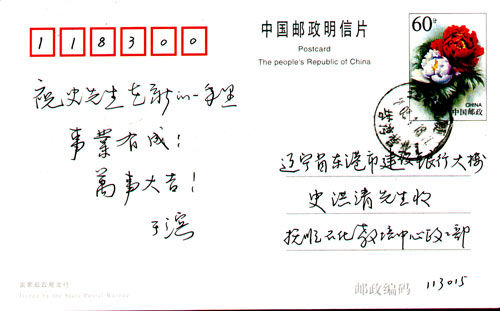 118300
中国邮政明信片
Postcard
The people's Republic of China
60分
CHINA
中国邮政
祝史先生在新的一年里
事業有成!
萬事大吉!
于滨
辽宁省东港市建设银行大楼
史洪清先生收
抚顺石化教培中心政工部
国家邮政局发行
Issued by the State Postal Bureau
邮政编码 113015